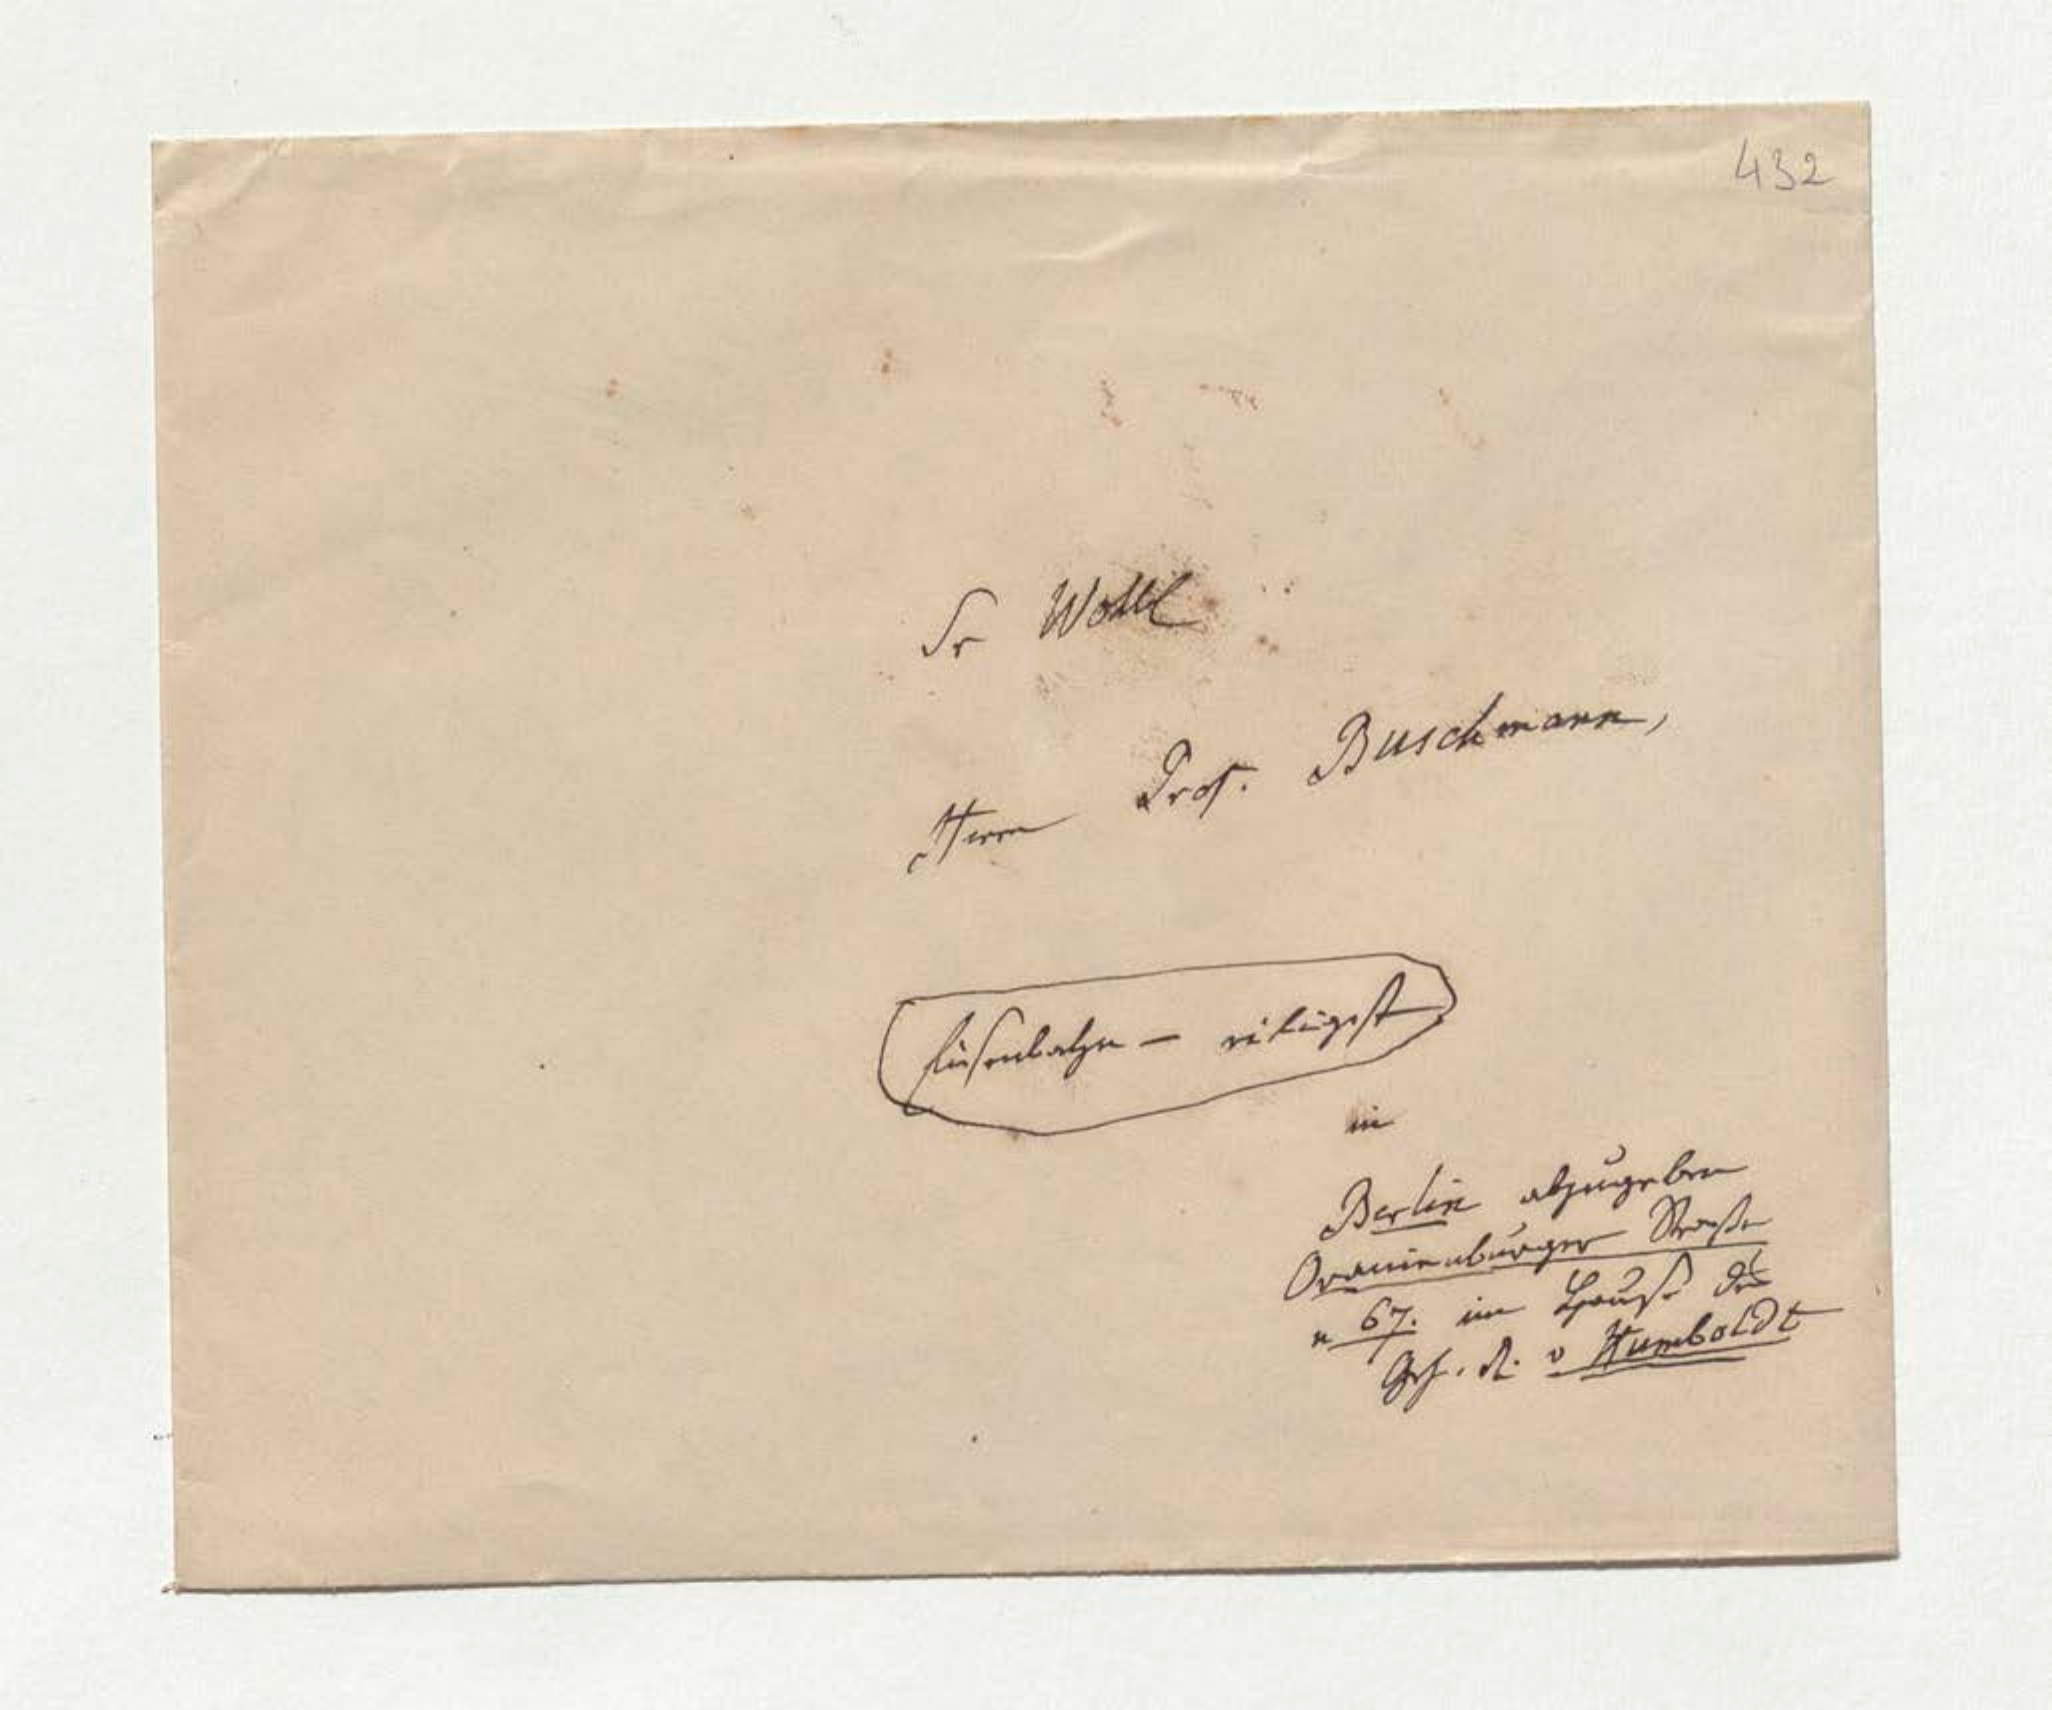 432
Sr Wohll
Herrn Prof. Buschmann,
Eisenbahn – eiligst
in
Berlin abzugeben
Oranienburger Straße
n 67. im Hause des
Geh. R. v Humboldt